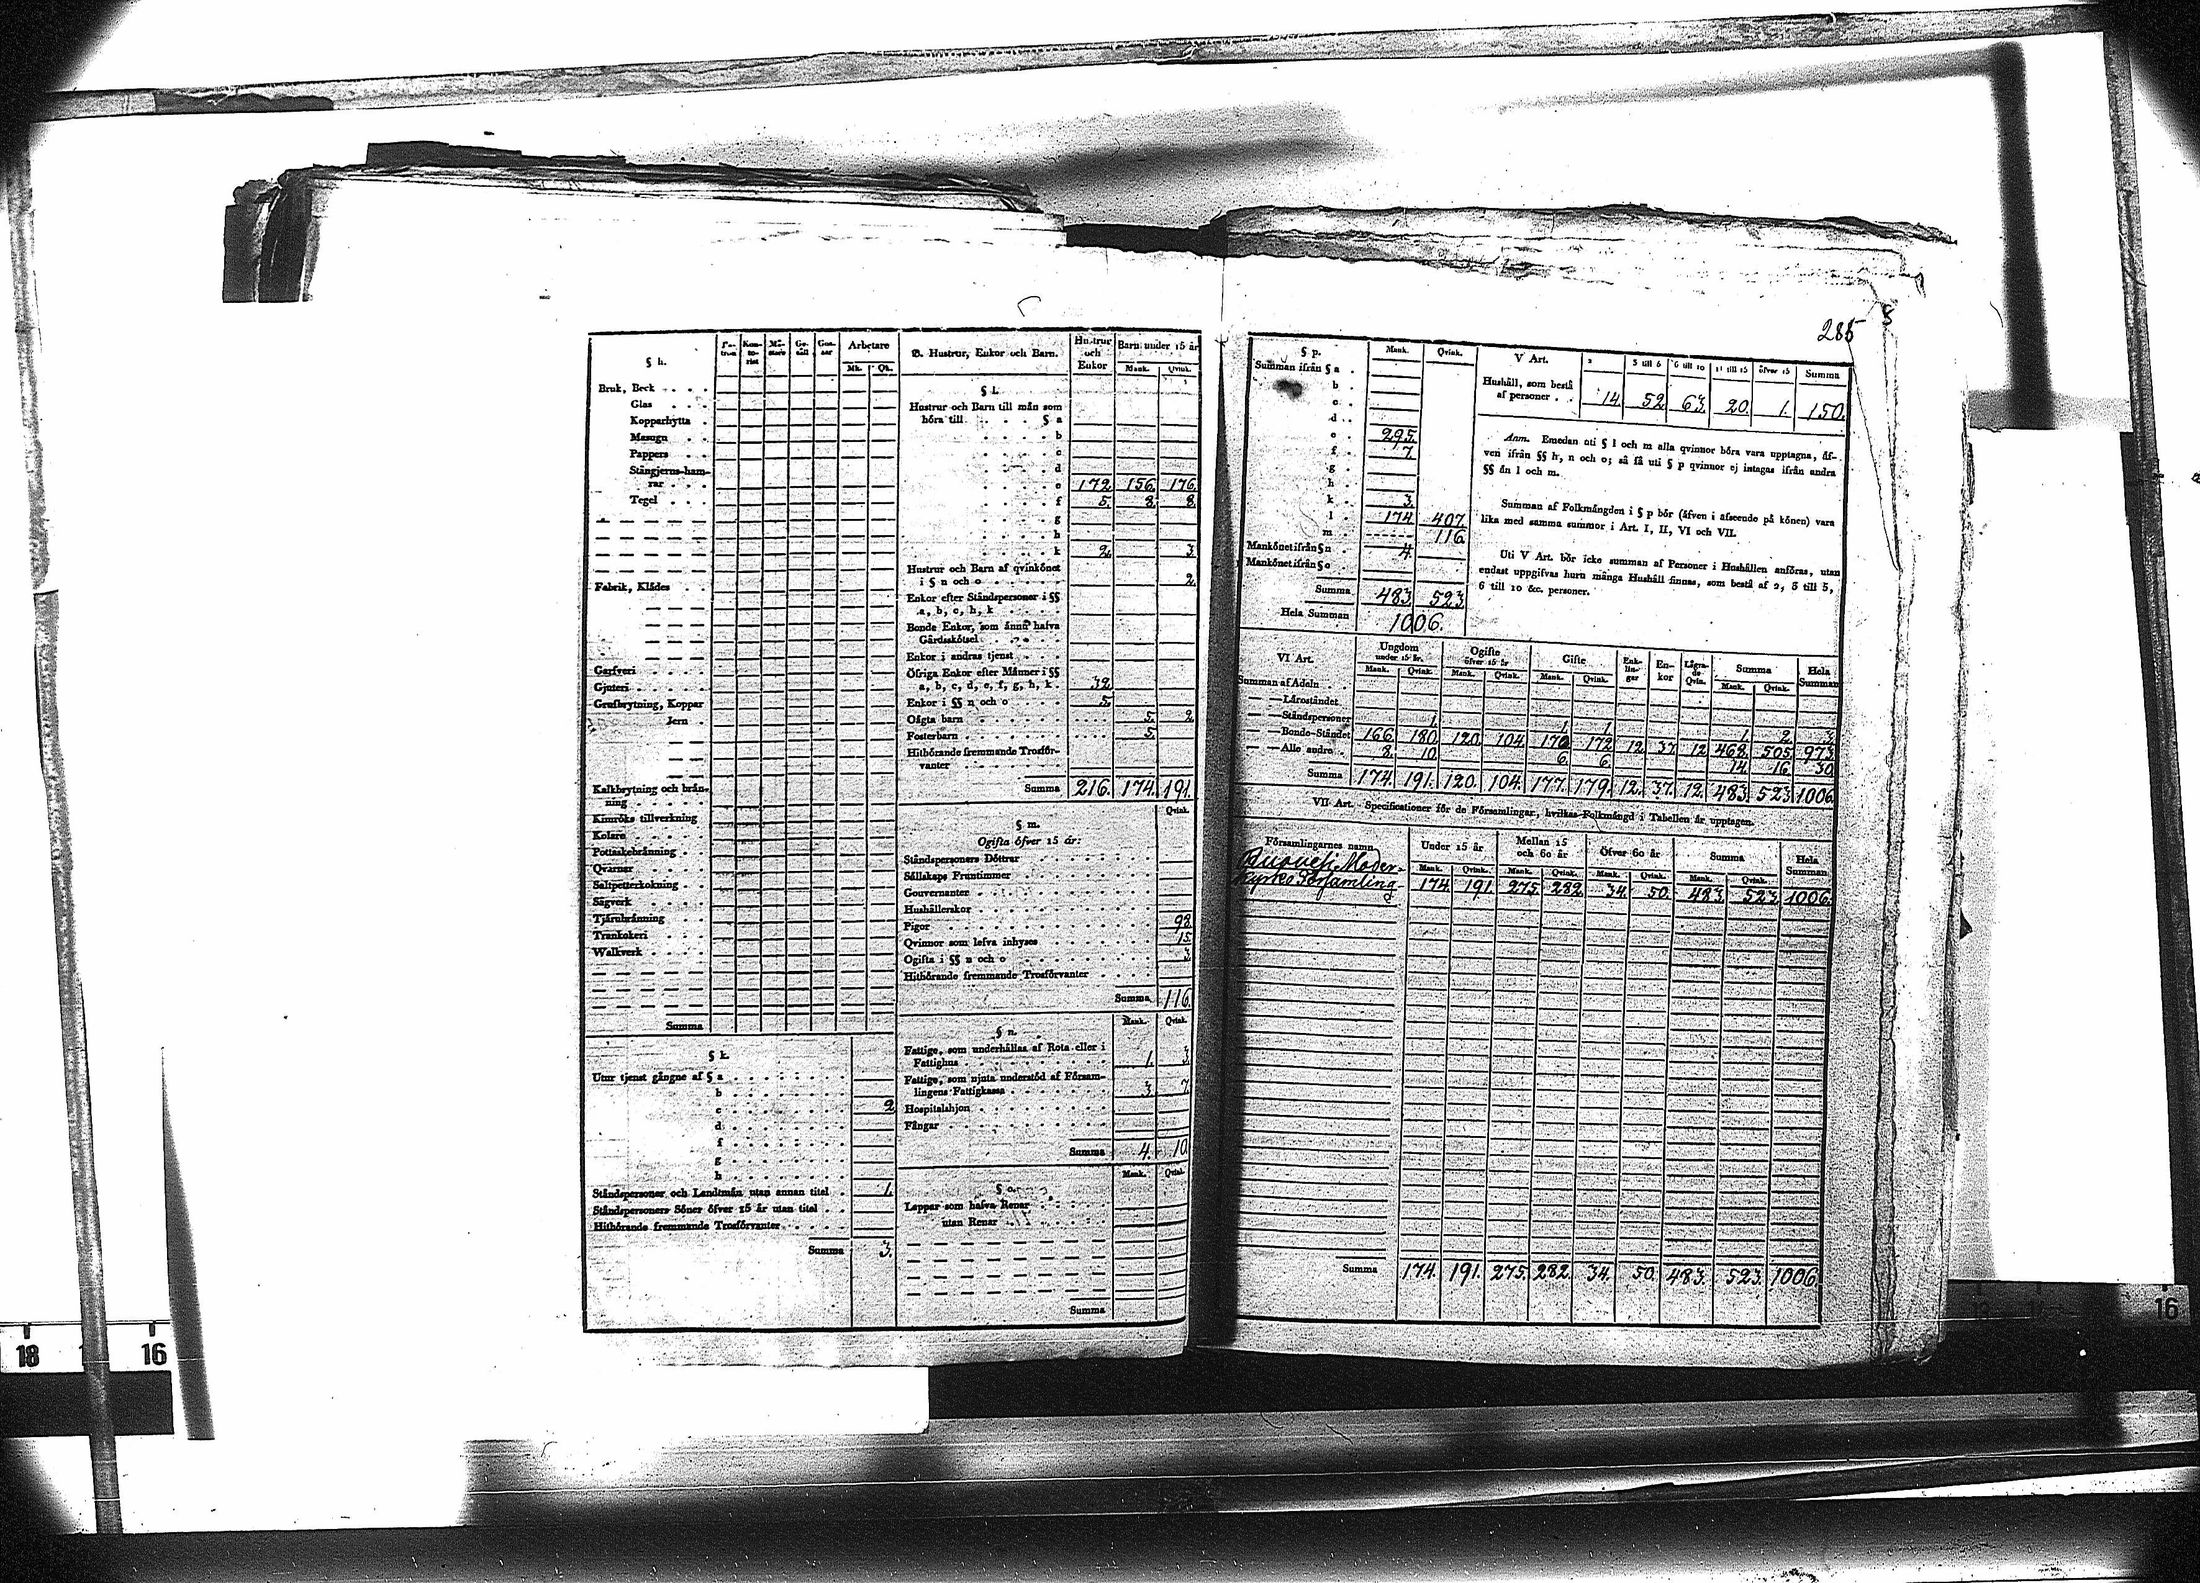 285
§ h.
Arbetare
Mk. Qk.
Bruk, Beck
Glas
Kopparhytta
Masugn
Pappers
Stångjerns-ham-
rar
Tegel
Fabrik, Klådes
Garfveri
Gjuteri
Grufbrytning, Koppar
Jern
Kalkbrytning och brån-
ning
Kimröks tillverkning
Kolare
Pottaskebrånning
Qvarnar
Saltpetterkokning
Sågverk
Tjårubrånning
Trankokeri
Walkverk
Summa
§ k.
Utur tjenst gångne af § a
b
c 2
d
f
g
h
Ståndspersoner och Landtmån utan annan titel 1.
Ståndspersoners Söner öfver 15 år utan titel
Hithörande fremmande Trosförvanter
Summa 3.
Hustrur, Enkor och Barn.
Hustrur och Enkor
Barn under 15 år
Mank. Qvink.
§ l.
Hustrur och Barn till mån som
höra till § a
b
c
d
e 172 156. 176.
f 5. 8. 8.
g
h
k 2. 3.
Hustrur och Barn af qvinkönet
i § n och o 2.
Enkor efter Ståndspersoner i §§
a, b, c, h, k
Bonde Enkor, som ånnu hafva
Gårdsskötsel
Enkor i andras tjenst
Öfriga Enkor efter Månner i §§
a, b, c, d, e, f, g, h, k. 32.
Enkor i §§ n och o 5.
Oågta barn 5. 2.
Fosterbarn 5.
Hithörande fremmande Trosför-
vanter
Summa 216. 174. 191.
Qvink.
§ m.
Ogifta öfver 15 år:
Ståndspersoners Döttrar
Sållskaps Fruntimmer
Gouvernanter
Hushållerskor
Pigor 98.
Qvinnor som lefva inhyses 15.
Ogifta i §§ n och o 3.
Hithörande fremmande Trosförvanter
Summa 116.
Mank. Qvink.
§ n.
Fattige, som underhållas af Rota eller i
Fattighus 1. 3.
Fattige, som njuta understöd af Försam-
lingens Fattigkassa 3. 7.
Hospitalshjon
Fångar
Summa 4. 10.
Mank. Qvink.
§ o.
Lappar som hafva Renar
utan Renar
Summa
§ p. Mank. Qvink.
Summan ifrån § a
b
c
d
e 295.
f 7.
g
h
k 3.
l 174. 407.
m 116.
Mankönet ifrån § n 4.
Mankönet ifrån § o
Summa 483. 523.
Hela Summan 1006.
V Art. 2 3 till 5 6 till 10 11 till 15 öfver 15 Summa
Hushåll, som bestå
af personer 14. 52. 63. 20. 1. 150.
Anm. Emedan uti § l och m alla qvinnor böra vara upptagna, åf-
ven ifrån §§ h, n och o; så få uti § p qvinnor ej intagas ifrån andra
§§ ån l och m.
Summan af Folkmångden i § p bör (åfven i afseende på könen) vara
lika med samma summor i Art. I, II, VI och VII.
Uti V Art. bör icke summan af Personer i Hushållen anföras, utan
endast uppgifvas huru många Hushåll finnas, som bestå af 2, 3 till 5,
6 till 10 &c. personer.
VI Art. Ungdom under 15 år. Ogifte öfver 15 år Gifte Enk-lin-gar En-kor Lågra-de Qvin. Summa Hela Summan
Mank. Qvink. Mank. Qvink. Mank. Qvink. Mank. Qvink.
Summan af Adeln
— Låroståndet
— Ståndspersoner 1. 1. 1. 1. 2. 3.
— Bonde-Ståndet 166. 180. 120. 104. 170. 172. 12. 37. 12. 468. 505. 973.
— Alle andre 8. 10. 6. 6. 14. 16. 30.
Summa 174. 191. 120. 104. 177. 179. 12. 37. 12. 483. 523. 1006.
VII Art. Specificationer för de Församlingar, hvilkas Folkmångd i Tabellen år upptagen.
Församlingarnes namn Under 15 år Mellan 15 och 60 år Öfver 60 år Summa Hela Summan
Mank. Qvink. Mank. Qvink. Mank. Qvink. Mank. Qvink.
Moder-
kyrko Församling 174. 191. 275. 282. 34. 50. 483. 523. 1006.
Summa 174. 191. 275. 282. 34. 50. 483. 523. 1006.
18
16
16